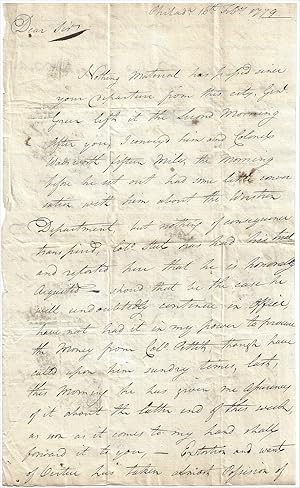 Philada 16th Feby 1779
Dear Sir,
Nothing Material has passed since
your departure from this city, Genl
Green left it the Second Morning
after you, I convey'd him and Colonel
Wadsworth fifteen Miles, the Morning
before he set out had some little conver
sation with them about the Western
Department, but nothing of consequence
transpired, Colo. has had his trial
and reported here that he is honorably
Acquitted – should that be the case he
will undoubtedly continue in office
have not had it in my power to procure
the Money from Colo. Pettit though have
called upon him sundry times, late,
this Morning he has given me Assurances
of it about the latter end of this week,
as soon as it comes to my hand shall
forward it to you, – Extortion and want
of Virtue has taken almost possession of